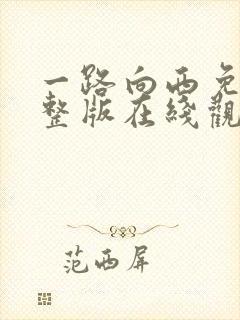 一路向西免
整版在线觀
范西屏